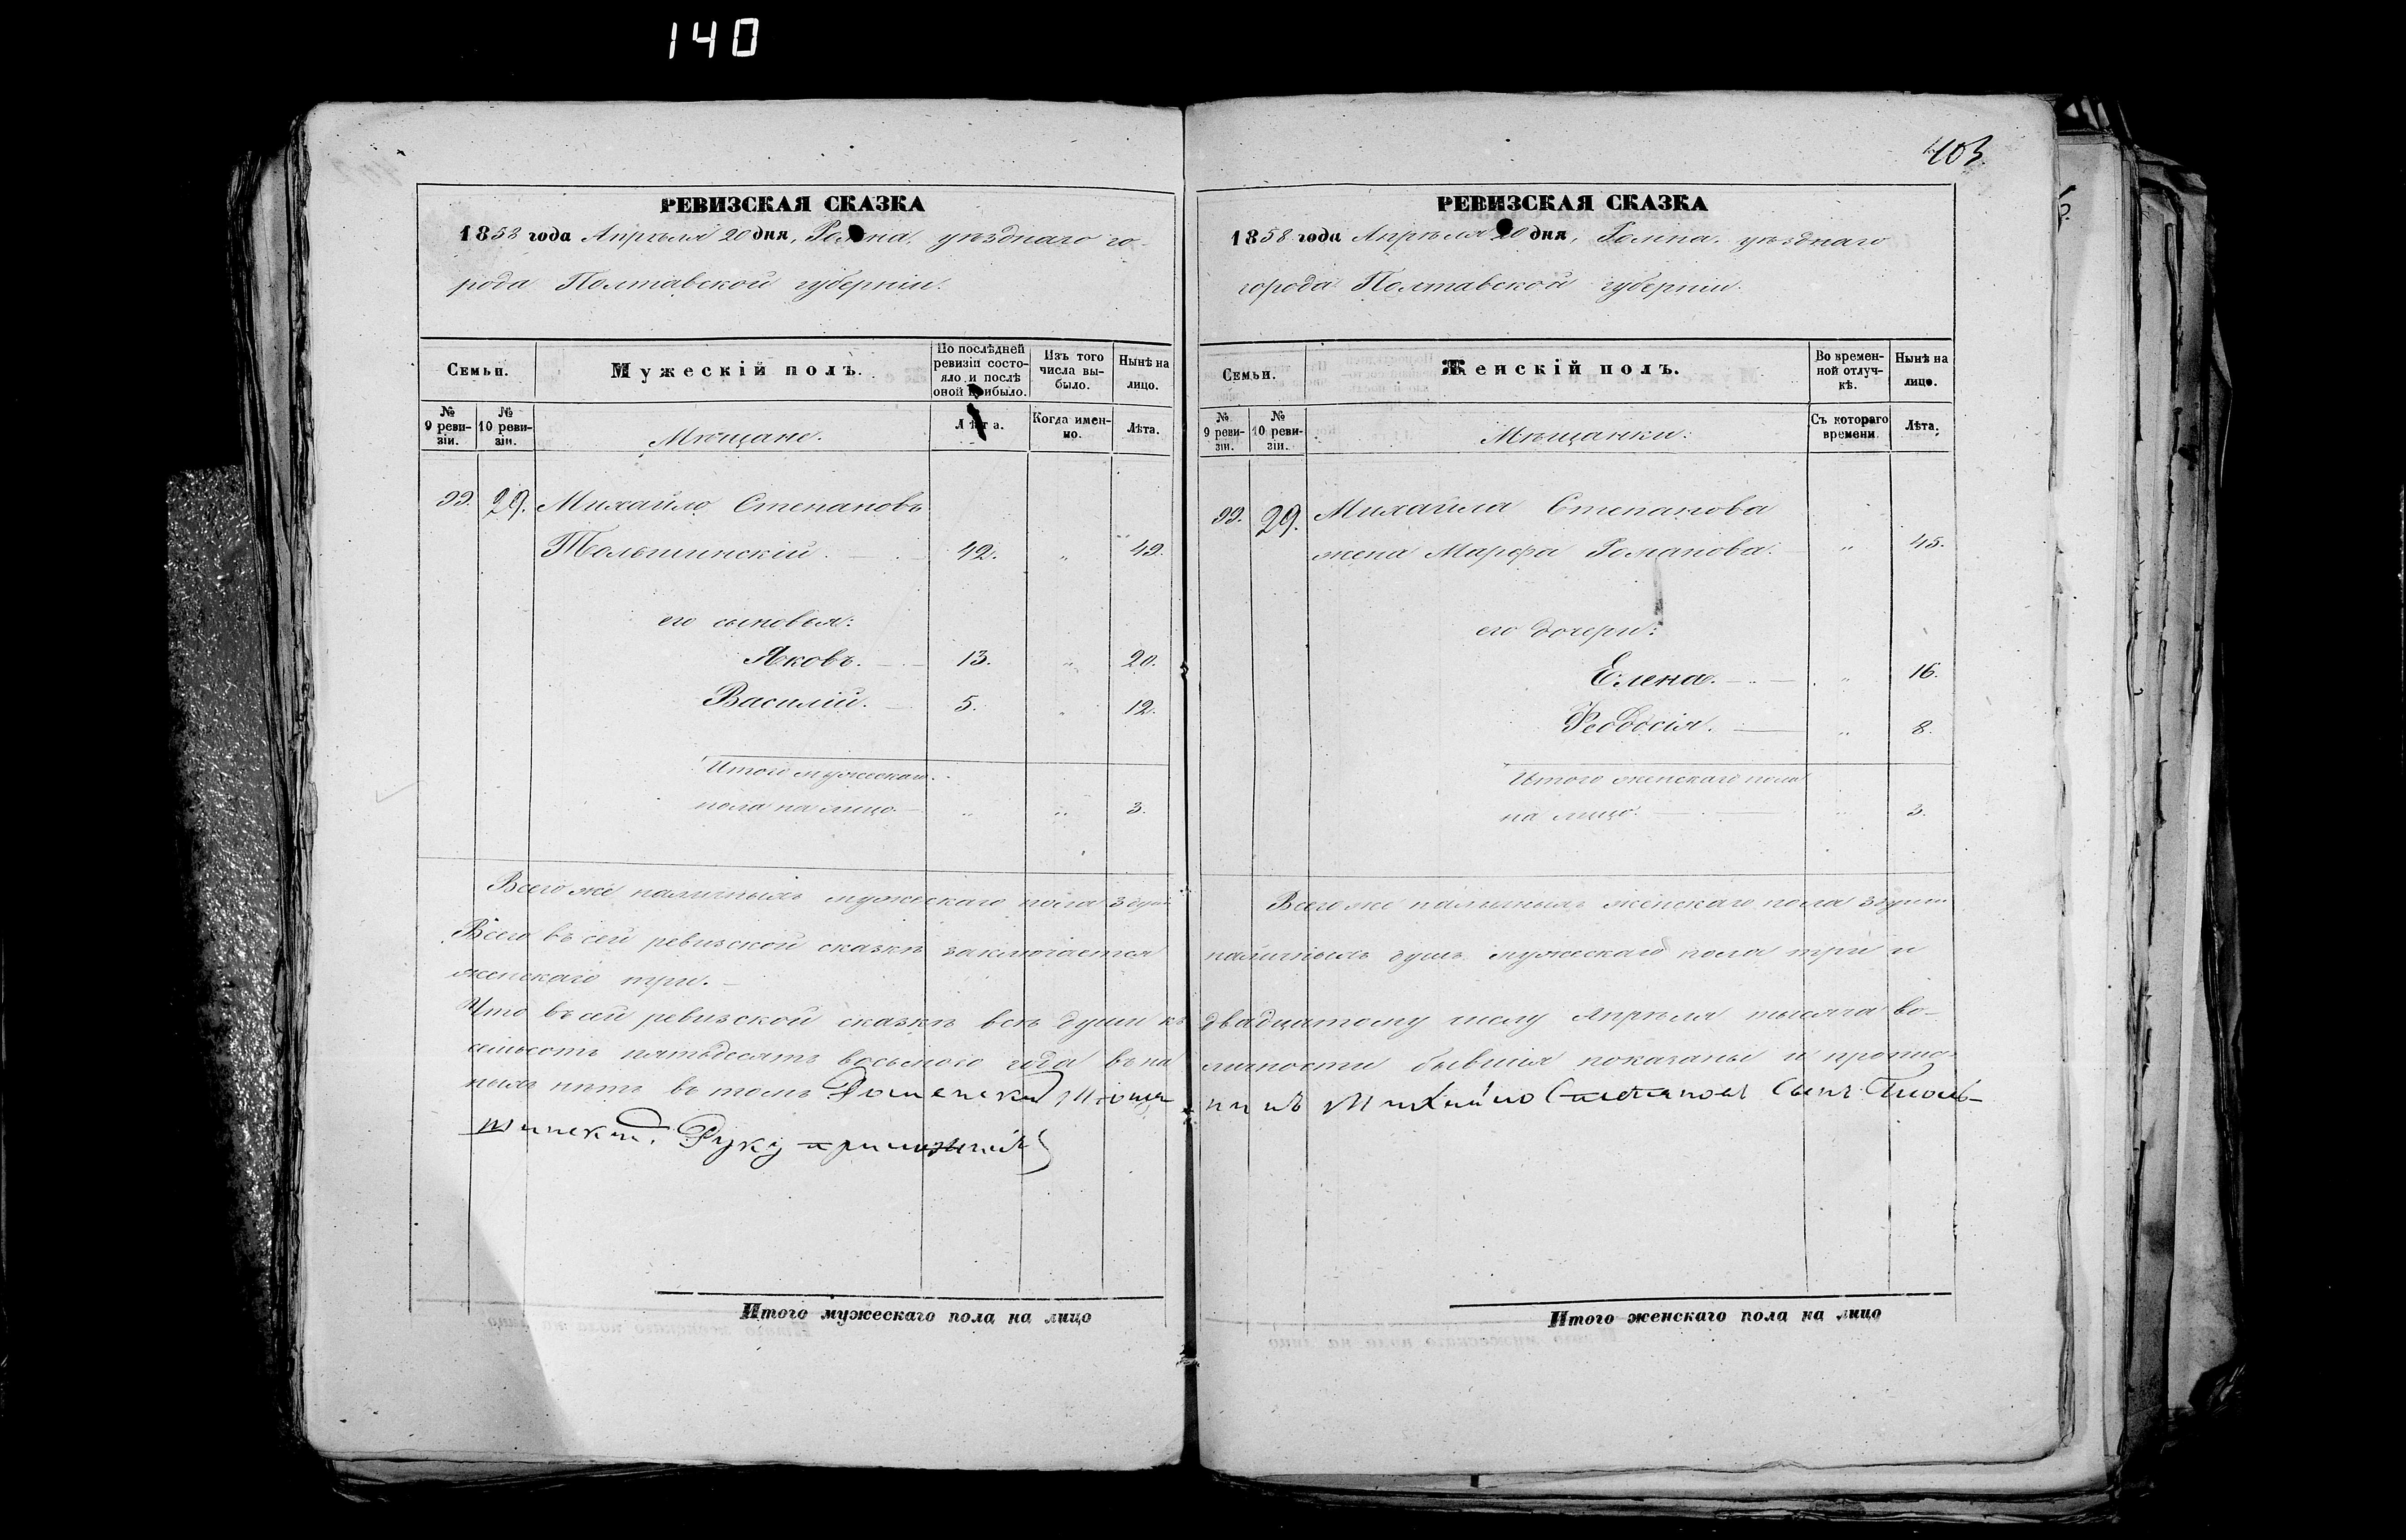 140
РЕВИЗСКАЯ СКАЗКА
1858 года Апрѣля 20 дня, Ромна, уѣзднаго го-
рода Полтавской губерніи.
Семьи.
Мужескій полъ.
По послѣдней ревизіи состояло и послѣ оной прибыло.
Изъ того числа выбыло.
Нынѣ на лицо.
№ 9 ревизіи.
№ 10 ревизіи.
Мѣщане.
Лѣта.
Когда именно.
Лѣта.
99. 29. Михайло Степановъ
Тольшинскій. 42. „ 49.
его сыновья:
Яковъ. 13. „ 20.
Василій. 5. „ 12.
Итого мужескаго
пола на лицо „ „ 3.
Всего же наличныхъ мужескаго пола 3 души
Всего въ сей ревизской сказкѣ заключается
женскаго три.
Что въ сей ревизской сказкѣ всѣ души къ
семьсотъ пятьдесятъ восьмого года въ на
ныхъ нѣтъ въ томъ Роменский Мещан
шинский. Руку приложилъ
Итого мужескаго пола на лицо
403
РЕВИЗСКАЯ СКАЗКА
1858 года Апрѣля 20 дня, Ромна, уѣзднаго
города Полтавской губерніи.
Семьи.
Женскій полъ.
Во временной отлучкѣ.
Нынѣ на лицо.
№ 9 ревизіи.
№ 10 ревизіи.
Мѣщанки:
Съ котораго времени.
Лѣта.
99. 29. Михайла Степанова
жена Марфа Романова. „ 45.
его дочери:
Елена. „ 16.
Феодосія. „ 8.
Итого женскаго пола
на лицо. „ 3.
Всего же наличныхъ женскаго пола 3 души
наличныхъ душъ мужескаго пола три и
двадцатому числу Апрѣля тысяча во-
личности бывшія показаны и пропис-
нинъ Михайло Степановъ Сынъ Тполь-
Итого женскаго пола на лицо